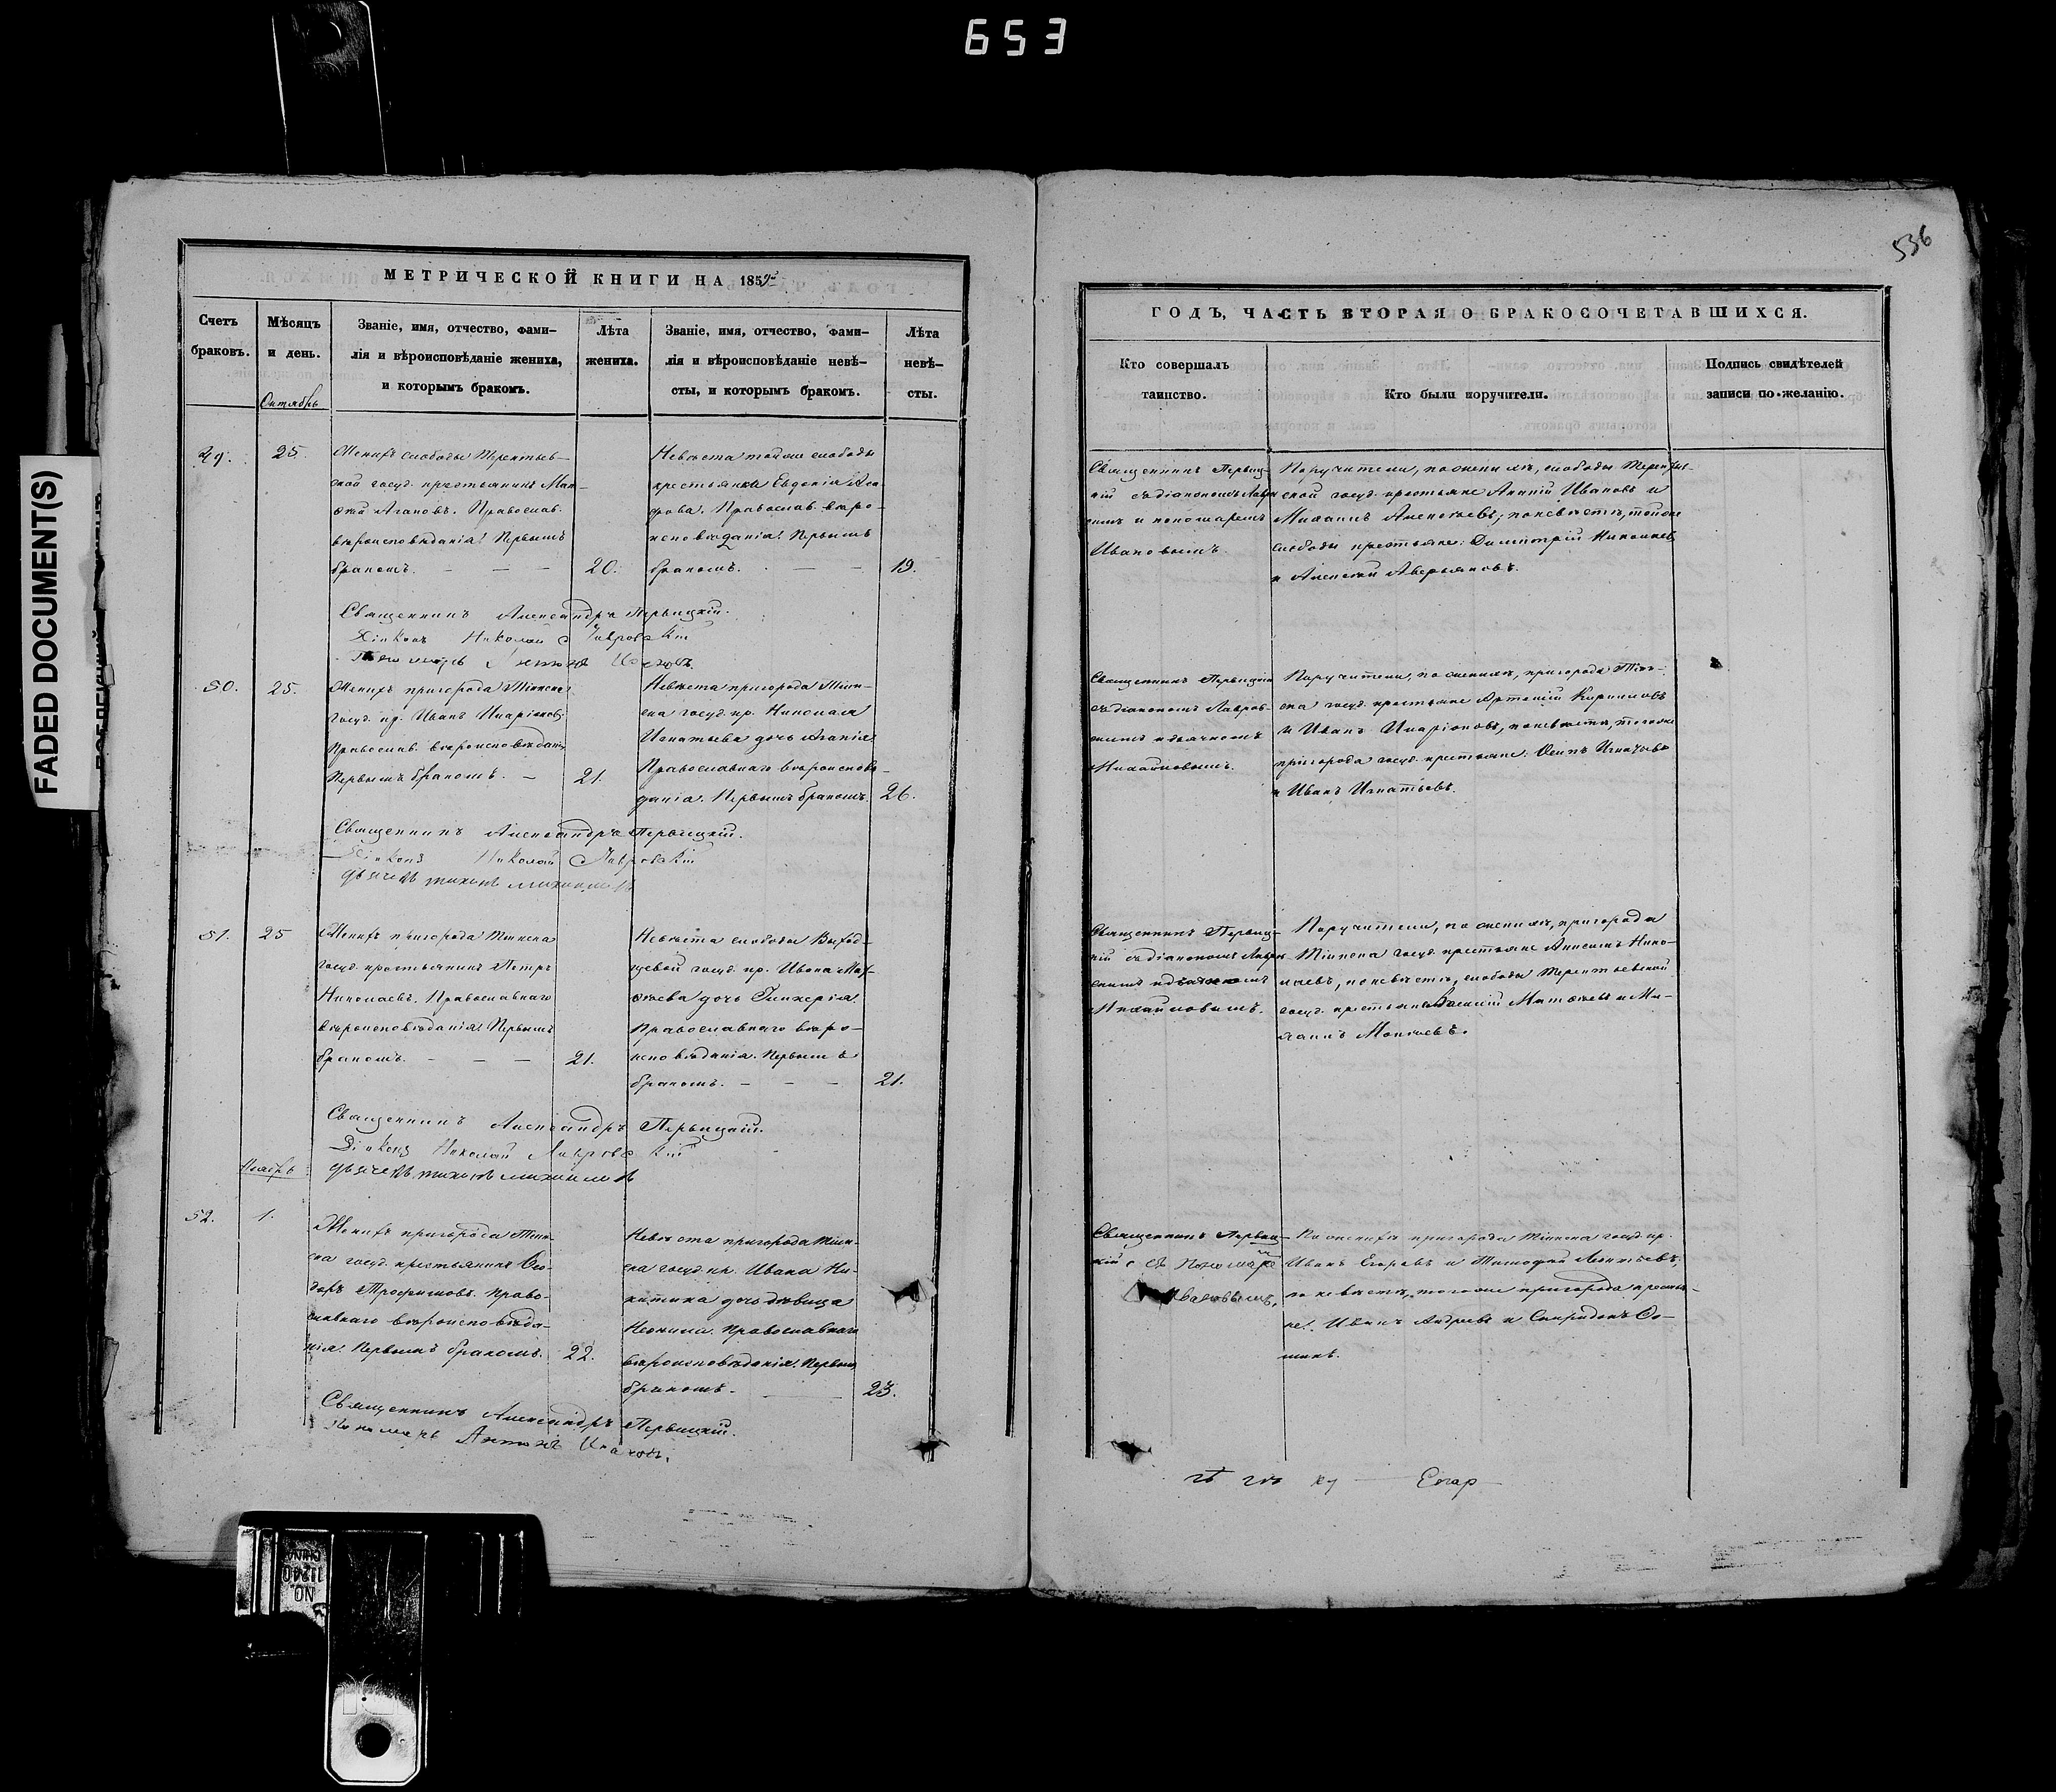 653
536
FADED DOCUMENT(S)
МЕТРИЧЕСКОЙ КНИГИ НА 1859
Счетъ
браковъ.
Мѣсяцъ
и день.
Октябрь
Званіе, имя, отчество, фами-
лія и вѣроисповѣданіе жениха,
и которымъ бракомъ.
Лѣта
жениха.
Званіе, имя, отчество, фами-
лія и вѣроисповѣданіе невѣ-
сты, и которымъ бракомъ.
Лѣта
невѣ-
сты.
49.
25.
Женихъ слободы Терентьев-
ской госуд. крестьянинъ Мак-
Агаповъ. Православ.
вѣроисповѣданія. Первымъ
бракомъ. — — —
20.
Невѣста тойже слободы
крестьянка Евдокія
Православ. вѣро-
исповѣданія. Первымъ
бракомъ. — —
19.
Священникъ Александръ Первицкій.
Діаконъ Николай Лавровскій
Пономарь Антонъ Ивановъ
50.
25.
Женихъ пригорода Тіинска
госуд. кр. Иванъ Иларіоновъ
Православ. вѣроисповѣданія
Первымъ бракомъ. —
21.
Невѣста пригорода Тіин-
ска госуд. кр. Николая
Игнатьева дочь Агапія
Православнаго вѣроисповѣ-
данія. Первымъ бракомъ.
26.
Священникъ Александръ Первицкій.
Діаконъ Николай Лавровскій
дьячекъ тихонъ михаиловъ
51.
25
Женихъ пригорода Тіинска
госуд. крестьянинъ Петръ
Николаевъ. Православнаго
вѣроисповѣданія. Первымъ
бракомъ. — — —
21.
Невѣста слободы Выход-
цевой госуд. кр. Ивана Мат-
ѳѣева дочь Гликерія.
Православнаго вѣро-
исповѣданія. Первымъ
бракомъ. — — —
21.
Священникъ Александръ Первицкій.
Діаконъ Николай Лавровскій
дьячекъ тихонъ михаиловъ
Ноябрь
52.
1.
Женихъ пригорода Тіин-
ска госуд. крестьянинъ Ѳео-
доръ Трофимовъ. Право-
славнаго вѣроисповѣда-
нія. Первымъ бракомъ.
22.
Невѣста пригорода Тіин-
ска госуд. кр. Ивана Ни-
китина дочь дѣвица
Неонила. Православнаго
вѣроисповѣданія. Первымъ
бракомъ. —
23.
Священникъ Александръ Первицкій.
Пономарь Антонъ Ивановъ.
ГОДЪ, ЧАСТЬ ВТОРАЯ О БРАКОСОЧЕТАВШИХСЯ.
Кто совершалъ
таинство.
Кто были поручители.
Подпись свидѣтелей
записи по желанію.
Священникъ Первиц-
кій съ діакономъ Лавров-
скимъ и пономаремъ
Ивановымъ.
Поручители, по женихѣ, слободы Терентьев-
ской госуд. крестьяне Ивановъ и
Михаилъ Алексѣевъ; по невѣстѣ, тойже
слободы крестьяне: Димитрій Николаевъ
и Алексѣй Аверьяновъ.
Священникъ Первицкій
съ діакономъ Лавров-
скимъ и дьячкомъ
Михаиловымъ.
Поручители, по женихѣ, пригорода Тіин-
ска госуд. крестьяне Артемій Кириловъ
и Иванъ Иларіоновъ, по невѣстѣ, тогоже
пригорода госуд. крестьяне: Осипъ Игнатьевъ
и Иванъ Игнатьевъ.
Священникъ Первиц-
кій съ діакономъ Лавров-
скимъ и дьячкомъ
Михаиловымъ.
Поручители, по женихѣ, пригорода
Тіинска госуд. крестьяне Нико-
лаевъ, по невѣстѣ, слободы Терентьевской
госуд. крестьяне Василій Матѳѣевъ и Ми-
хаилъ
Священникъ Первиц-
кій, съ Пономаремъ
Ивановымъ.
По женихѣ пригорода Тіинска госуд. кр.
Иванъ Егоровъ и Тимофей Леонтьевъ;
по невѣстѣ, тогоже пригорода крестья-
не: Иванъ Андреевъ и Спиридонъ Ѳо-
минъ.